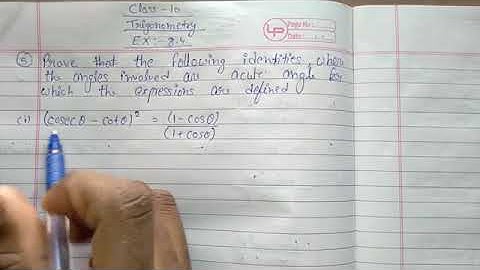 Class - 10
Trigonometry
EX:- 8.4
LP Page No.:
Date:
(5) Prove that the following identities, where
the angles involved are acute angle for
which the expressions are defined
(i) (cosecθ - cotθ)² = (1 - cosθ)
(1 + cosθ)